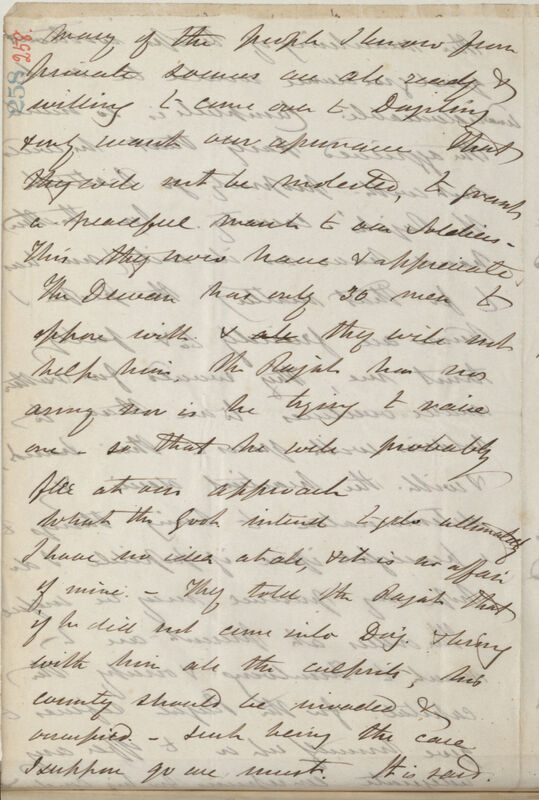 258
258.
Many of the people I know from
private sources are all ready &
willing to come over to Darjeeling
& only want our assurance that
they will not be molested, to grant
a peaceful march to our Soldiers –
This they now have & appreciate.
The Dewan has only 30 men to
oppose with & all they will not
help him. The Rajah has no
army nor is he trying to raise
one – so that he will probably
flee at our approach
What the Govt intend to do ultimately
I have no idea at all, & it is no affair
of mine. – They told the Rajah that
if he did not come into Dorj. & bring
with him all the culprits, his
country should be invaded &
occupied – such being the case
I suppose go we must. It is said.